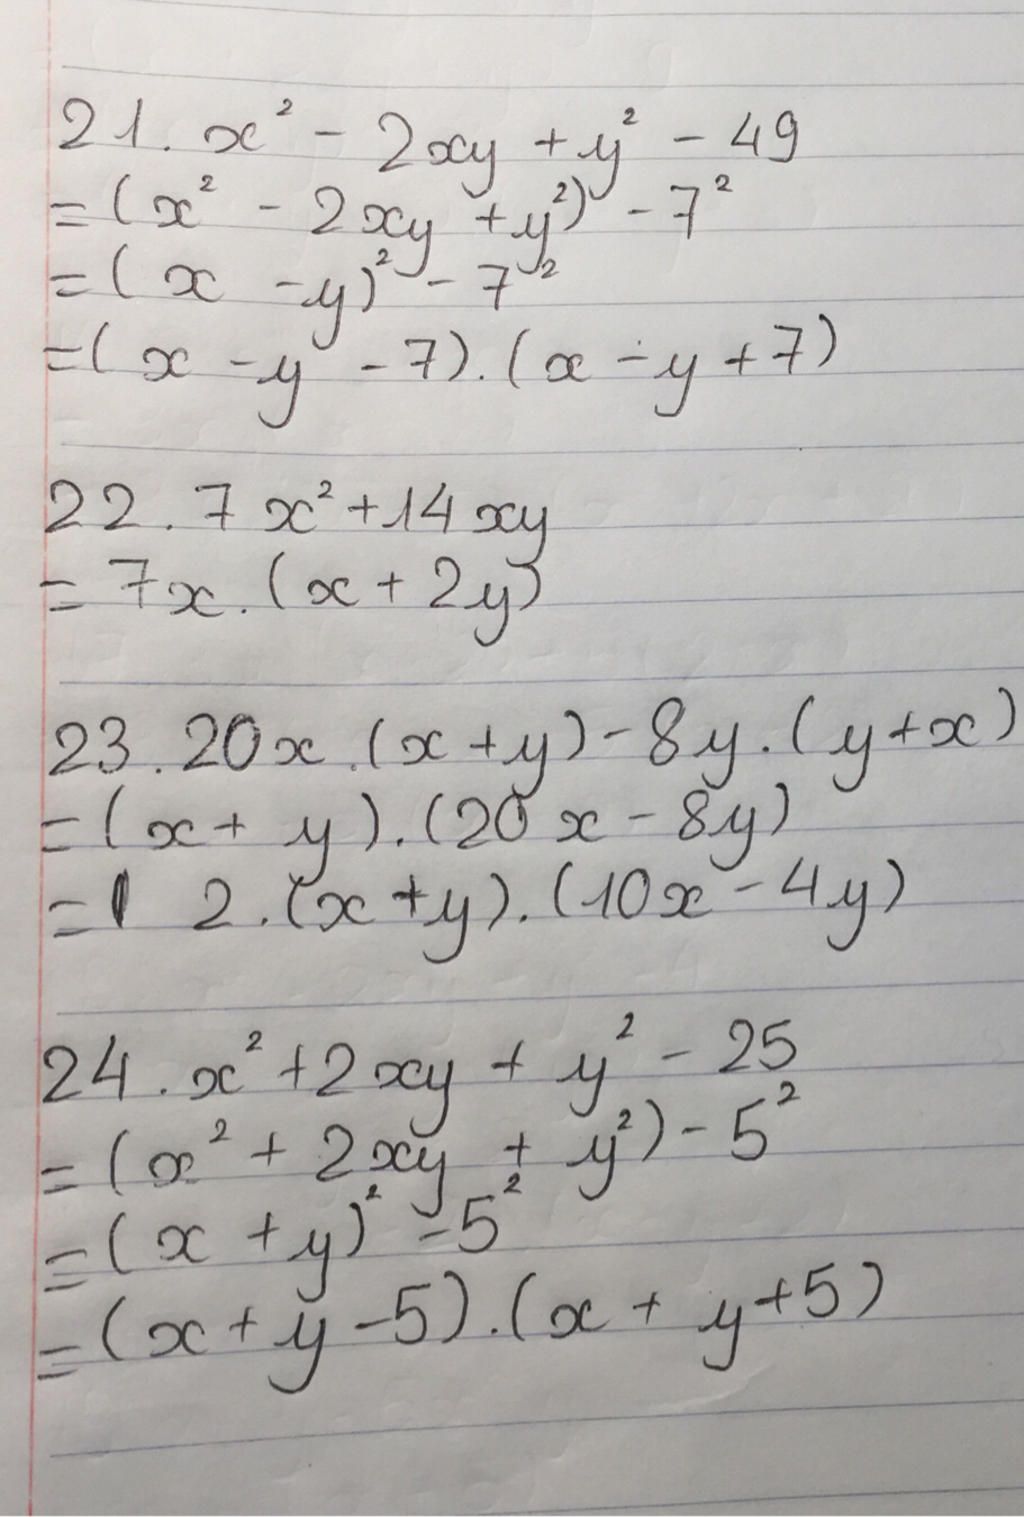 21. x² - 2xy + y² - 49
= (x² - 2xy + y²) - 7²
= (x - y)² - 7²
= (x - y - 7). (x - y + 7)
22. 7x² + 14xy
= 7x. (x + 2y)
23. 20x. (x + y) - 8y. (y + x)
= (x + y). (20x - 8y)
= 2. (x + y). (10x - 4y)
24. x² + 2xy + y² - 25
= (x² + 2xy + y²) - 5²
= (x + y)² - 5²
= (x + y - 5). (x + y + 5)